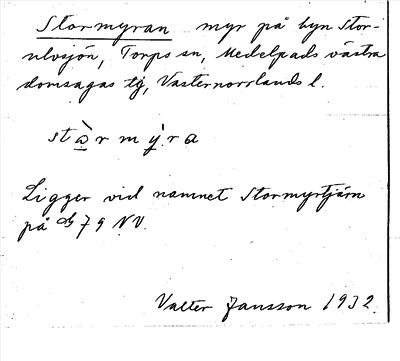 Stormyran myr på byn Stor-
ulvsjön, Torps sn, Medelpads västra
domsagas tg, Västernorrlands l.
Ligger vid namnet Stormyrtjärn
på 79 NV.
Valter Jansson 1932.